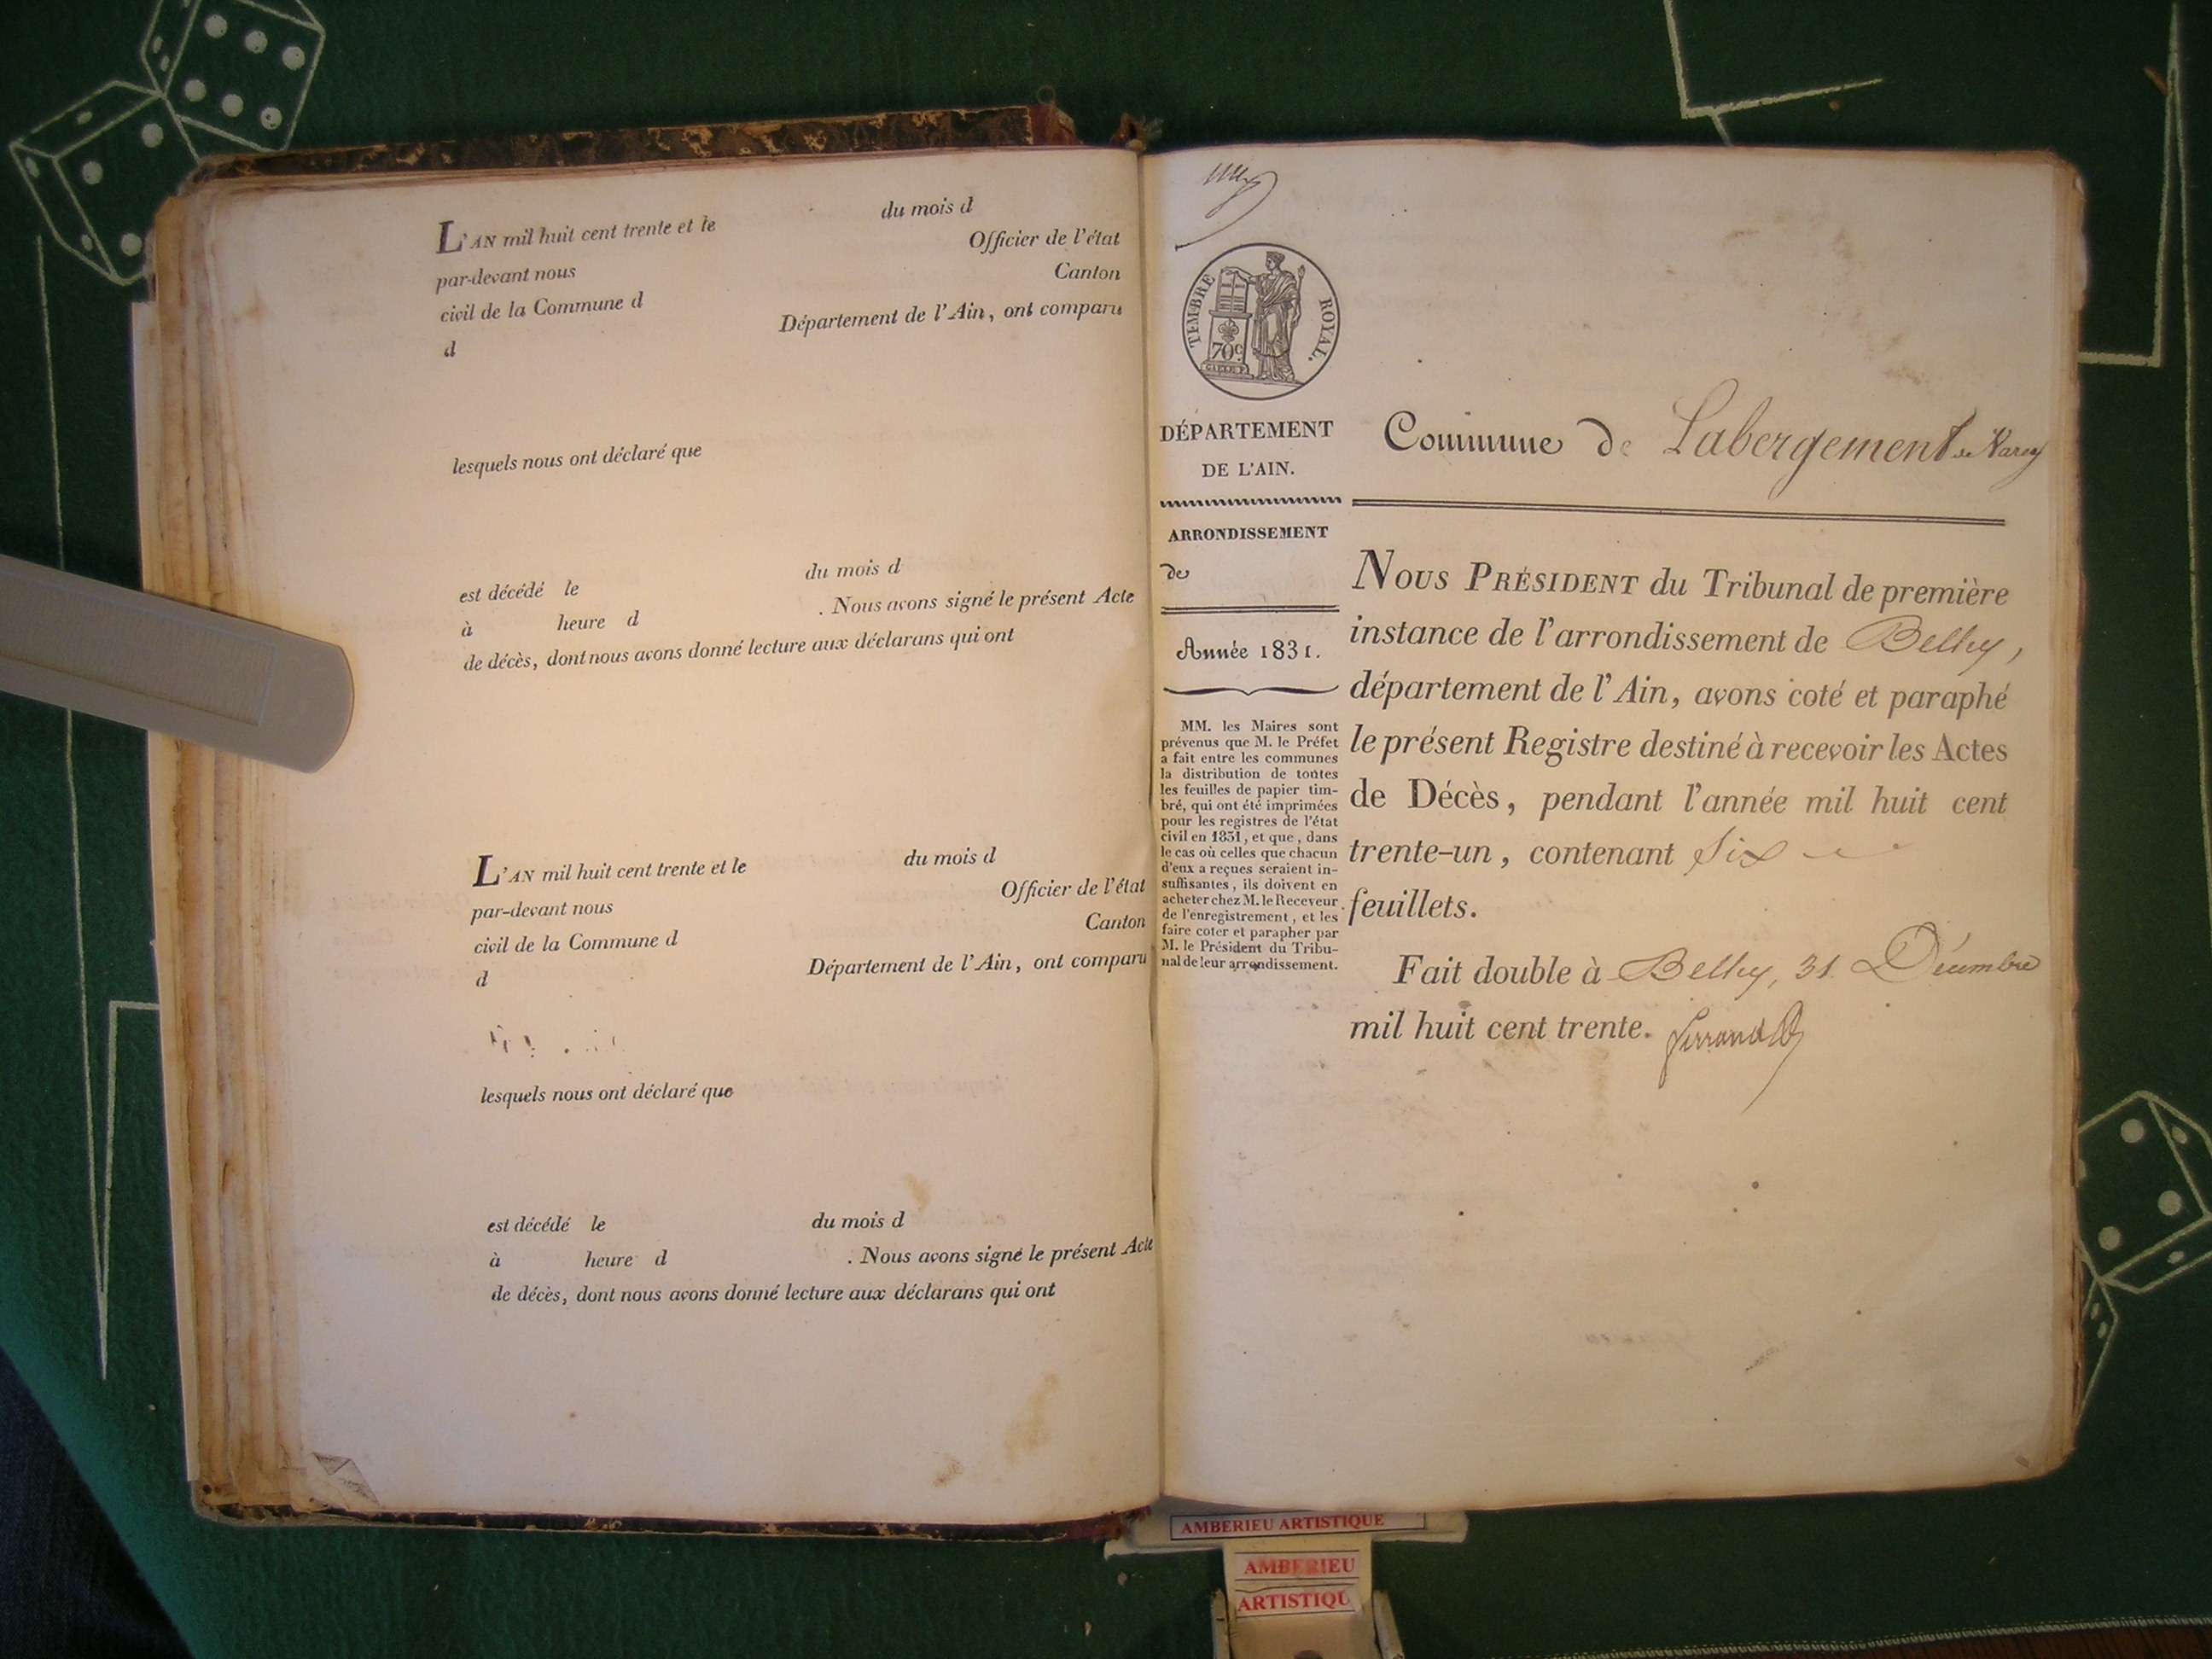 L'AN mil huit cent trente et le du mois d
par-devant nous Officier de l'état
civil de la Commune d Canton
d Département de l'Ain, ont comparu
lesquels nous ont déclaré que
est décédé le du mois d
à heure d . Nous avons signé le présent Acte
de décès, dont nous avons donné lecture aux déclarans qui ont
L'AN mil huit cent trente et le du mois d
par-devant nous Officier de l'état
civil de la Commune d Canton
d Département de l'Ain, ont comparu
lesquels nous ont déclaré que
est décédé le du mois d
à heure d . Nous avons signé le présent Acte
de décès, dont nous avons donné lecture aux déclarans qui ont
TIMBRE ROYAL.
70c
DÉPARTEMENT
DE L'AIN.
ARRONDISSEMENT
de
Année 1831.
MM. les Maires sont
prévenus que M. le Préfet
a fait entre les communes
la distribution de toutes
les feuilles de papier tim-
bré, qui ont été imprimées
pour les registres de l'état
civil en 1831, et que, dans
le cas où celles que chacun
d'eux a reçues seraient in-
suffisantes, ils doivent en
acheter chez M. le Receveur
de l'enregistrement, et les
faire coter et parapher par
M. le Président du Tribu-
nal de leur arrondissement.
Commune de Labergement de Varey
NOUS PRÉSIDENT du Tribunal de première
instance de l'arrondissement de Belley,
département de l'Ain, avons coté et paraphé
le présent Registre destiné à recevoir les Actes
de Décès, pendant l'année mil huit cent
trente-un, contenant Six
feuillets.
Fait double à Belley, 31 Décembre
mil huit cent trente.
AMBERIEU ARTISTIQUE
AMBERIEU
ARTISTIQU